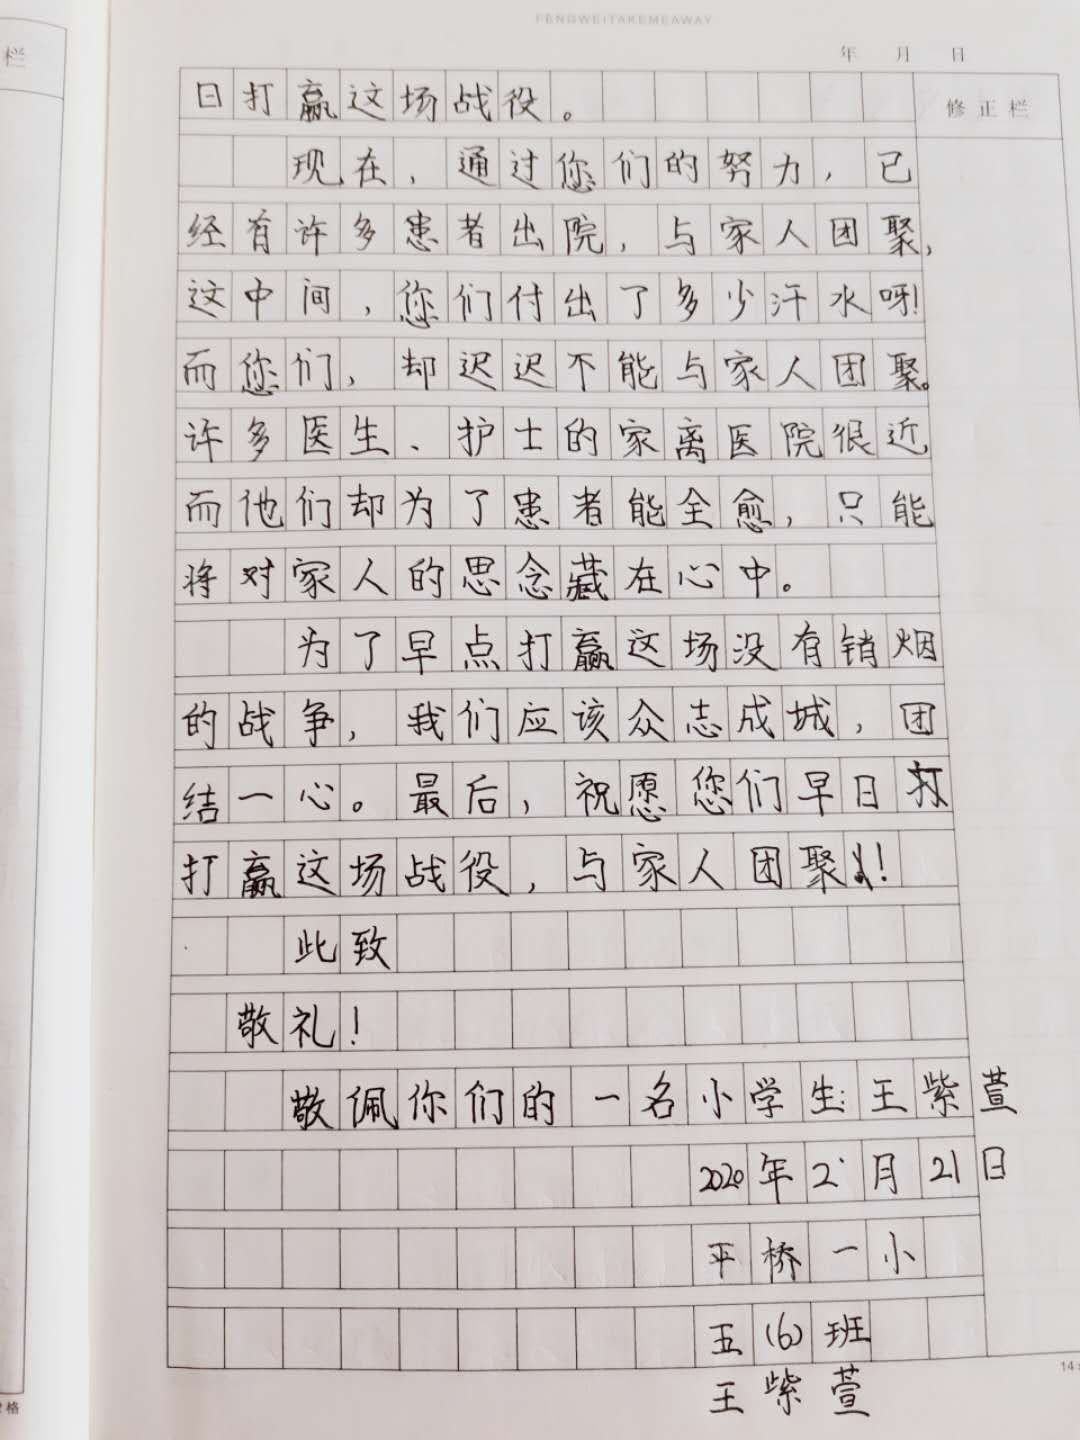 FENGWEITAKEMEAWAY
年 月 日
栏
修正栏
日打赢这场战役。
现在，通过您们的努力，已
经有许多患者出院，与家人团聚，
这中间，您们付出了多少汗水呀！
而您们，却迟迟不能与家人团聚。
许多医生、护士的家离医院很近
而他们却为了患者能全愈，只能
将对家人的思念藏在心中。
为了早点打赢这场没有销烟
的战争，我们应该众志成城，团
结一心。最后，祝愿您们早日打
打赢这场战役，与家人团聚！！
此致
敬礼！
敬佩你们的一名小学生：王紫萱
2020年2月21日
平桥一小
五（6）班
王紫萱
格